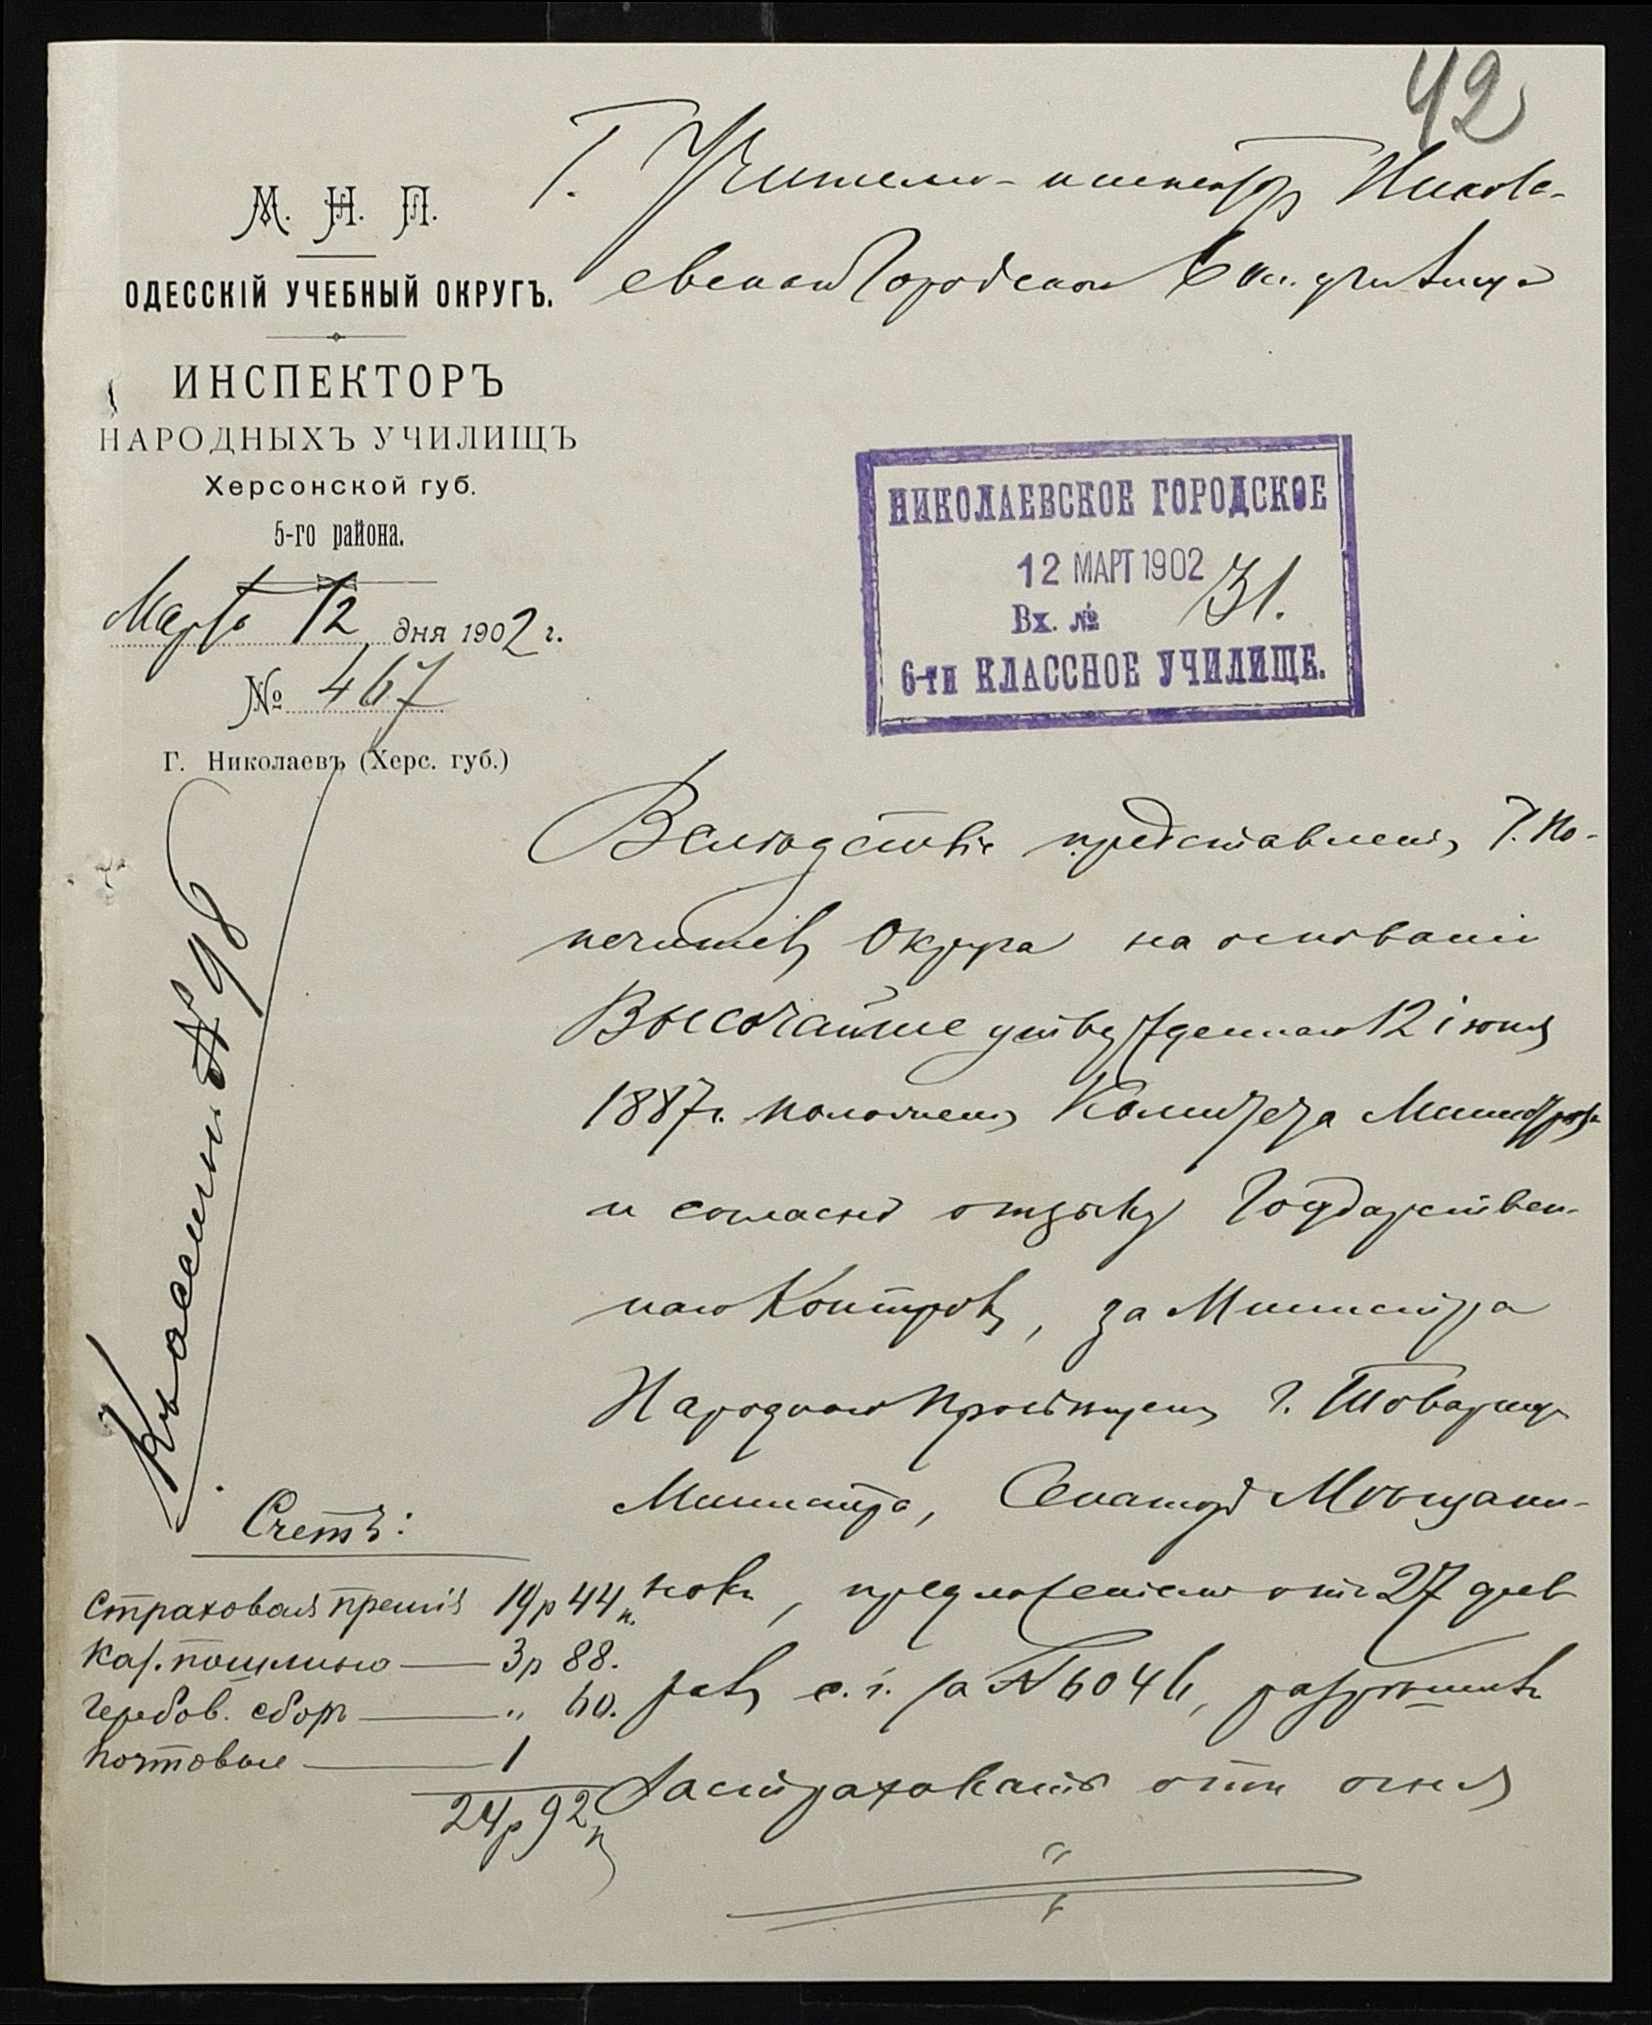 42
М. Н. П.
ОДЕССКІЙ УЧЕБНЫЙ ОКРУГЪ.
ИНСПЕКТОРЪ
НАРОДНЫХЪ УЧИЛИЩЪ
Херсонской губ.
5-го района.
Марта 12 дня 1902 г.
№ 467
Г. Николаевъ (Херс. губ.)
Г. Учителю-инспектору Никола-
евскаго Городского 6 кл. училища
НИКОЛАЕВСКОЕ ГОРОДСКОЕ
12 МАРТ 1902
Вх. № 131.
6-ти КЛАССНОЕ УЧИЛИЩЕ.
Вслѣдствіе представленія Г. По-
печителя Округа на основаніи
Высочайше утвержденнаго 12 іюня
1887 г. положенія Комитета Министровъ
и согласно отзыву Государствен-
наго Контроля, за Министра
Народнаго Просвѣщенія г. Товарищъ
Министра, Сенаторъ Мѣщани-
новъ, предложеніемъ отъ 27 фев
раля с. г. за № 6046, разрѣшилъ
застраховать отъ огня
Классный № 98
Счетъ:
страховая премія 19р 44 к.
каз. пошлина — 3р 88.
гербов. сборъ — " 60.
почтовые — 1
24р 92к